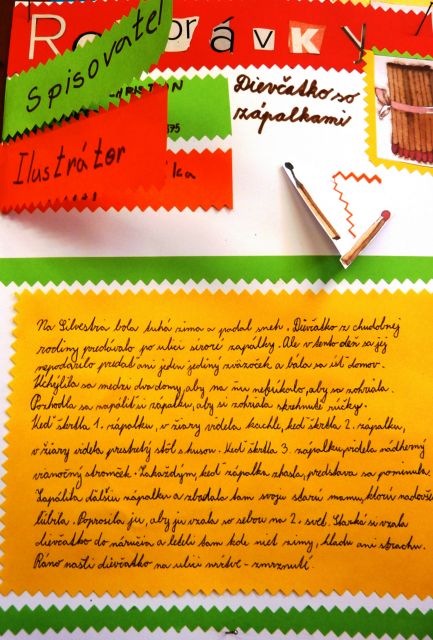 Rozprávky
Spisovateľ
Ilustrátor
Dievčatko so
zápalkami
Na Silvestra bola tuhá zima a padal sneh. Dievčatko z chudobnej
rodiny predávalo po ulici sirové zápalky. Ale v tento deň sa jej
nepodarilo predať ani jeden jediný zväzoček a bála sa ísť domov.
Uchýlila sa medzi dva domy, aby na ňu nefúkalo, aby sa zohriala.
Rozhodla sa zapáliť si zápalku, aby si zohriala skrehnuté rúčky.
Keď škrtla 1. zápalku, v žiary videla kachle, keď škrtla 2. zápalku,
v žiary videla prestretý stôl s husou. Keď škrtla 3. zápalku, videla nádherný
vianočný stromček. Zakaždým, keď zápalka zhasla, predstava sa pominula.
Zapálila ďalšiu zápalku a zbadala tam svoju starú mamu, ktorú nadovšetko
ľúbila. Poprosila ju, aby ju vzala so sebou na 2. svet. Starká si vzala
dievčatko do náručia a leteli tam kde niet zimy, hladu ani strachu.
Ráno našli dievčatko na ulici mŕtve - zmrznuté.